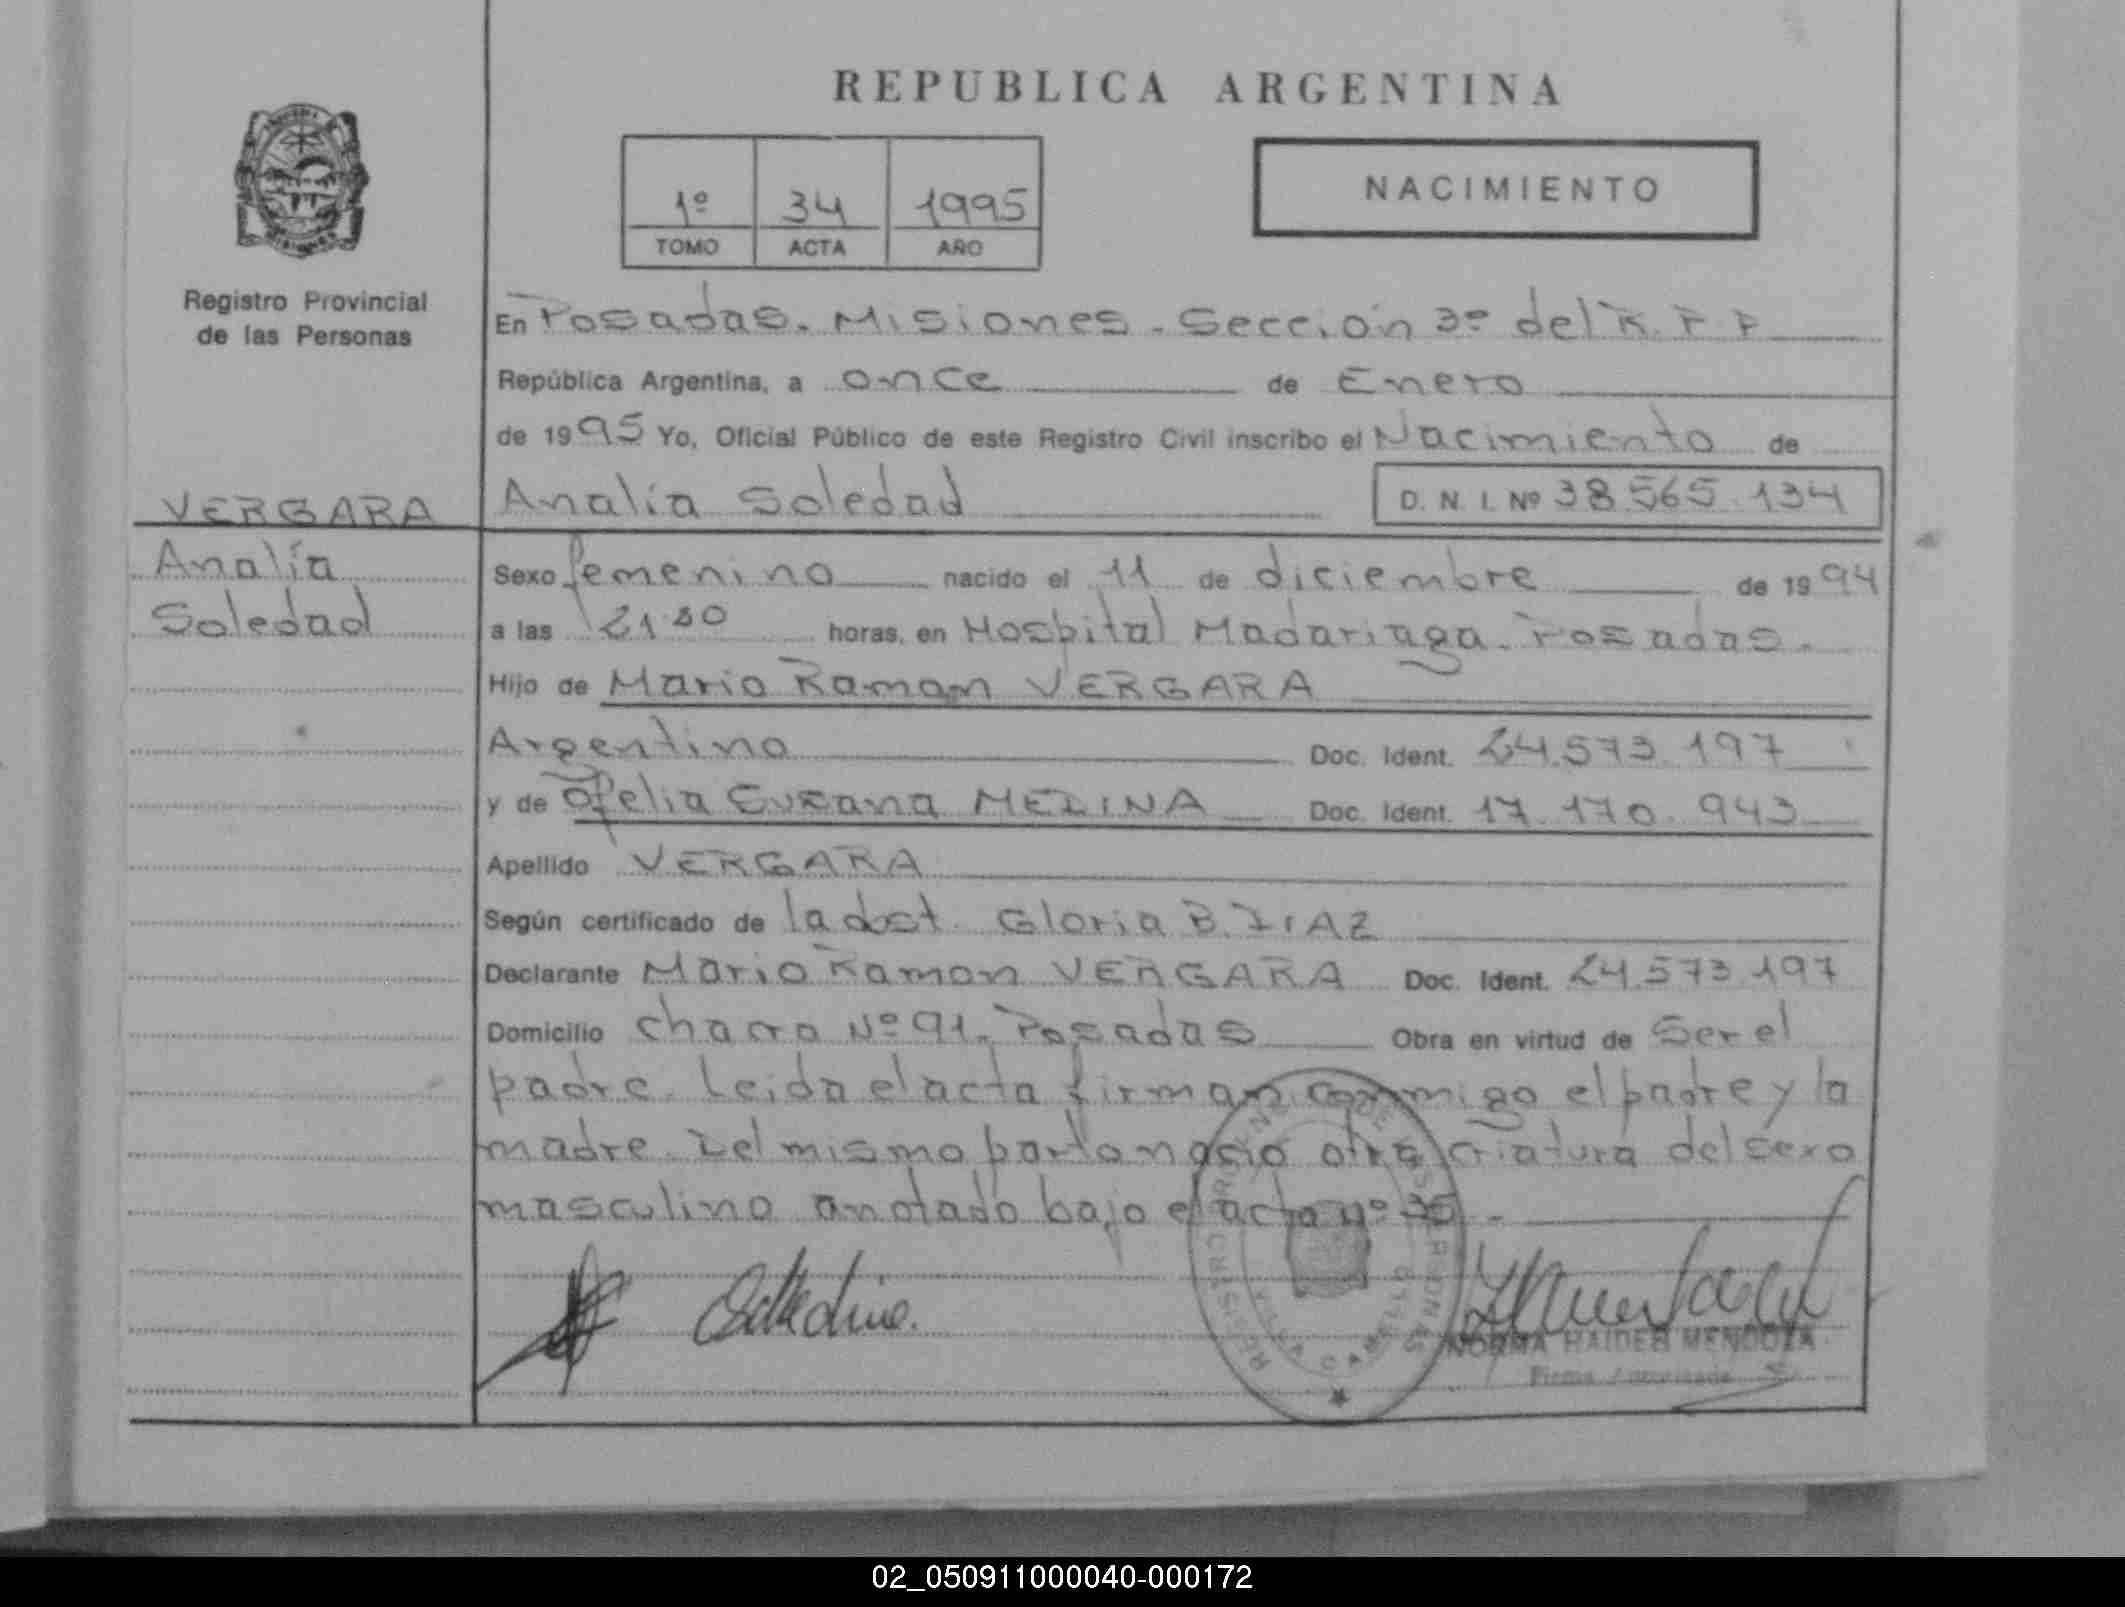 REPUBLICA ARGENTINA
NACIMIENTO
1º 34 1995
TOMO ACTA AÑO
Registro Provincial
de las Personas
En Posadas. Misiones. Sección 3º del R.P.P
República Argentina, a once de Enero
de 1995 Yo, Oficial Público de este Registro Civil inscribo el Nacimiento de
VERGARA
Analía Soledad D. N. I. Nº 38.565.134
Analía
Soledad
Sexo femenino nacido el 11 de diciembre de 1994
a las horas, en Hospital Madariaga. Posadas.
Hijo de Mario Ramon VERGARA
Argentino Doc. Ident. 24.573.197
y de Ofelia Susana MEDINA Doc. Ident. 17.170.943
Apellido VERGARA
Según certificado de la obst. Gloria B. DIAZ
Declarante Mario Ramon VERGARA Doc. Ident. 24.573.197
Domicilio chacra Nº 91. Posadas Obra en virtud de Ser el
padre. Leida el acta firman conmigo el padre y la
madre. Del mismo parto nació otra criatura del sexo
masculino anotado bajo el acta nº 35.-
REGISTRO PROVINCIAL DE LAS PERSONAS
VILLA CABELLO
OSMedina.
NORMA HAIDEE MENDOZA
Firma Autorizada
02_050911000040-000172